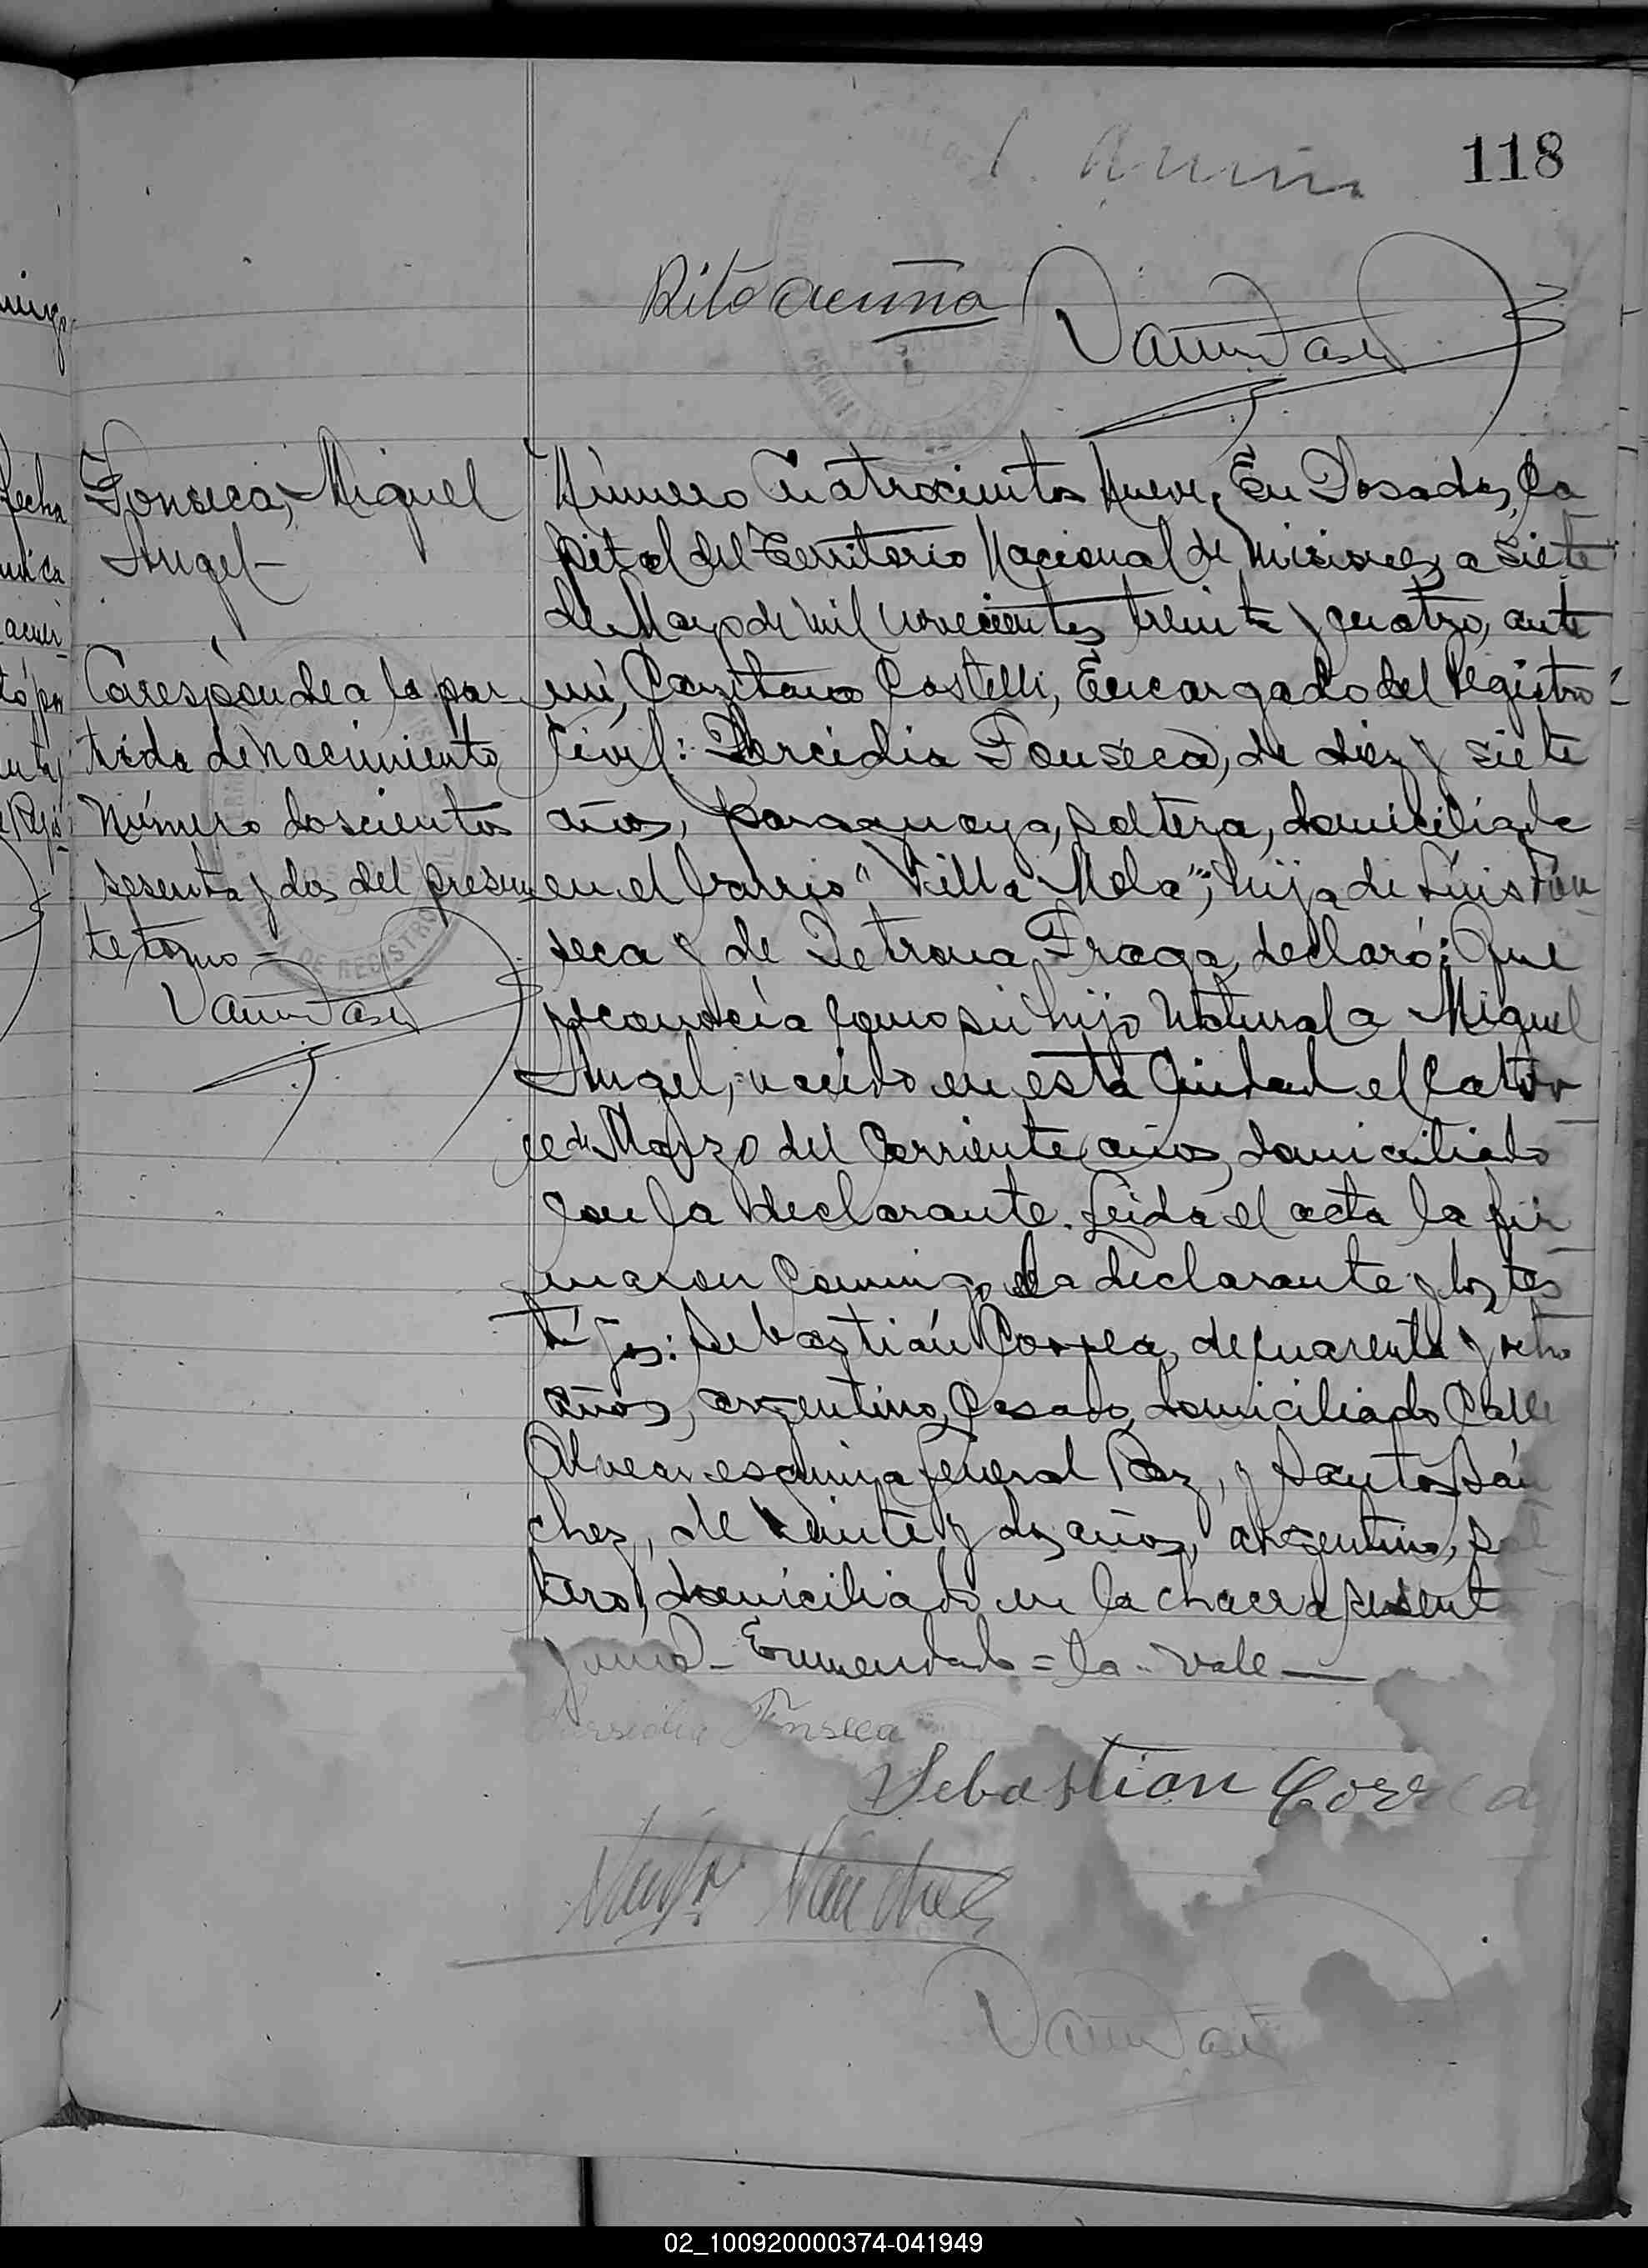 118
Rito Acuña
Fonseca, Miguel
Angel-
Corresponde a la par-
tida de nacimiento
Número doscientos
sesenta y dos del presen
te tomo-
Número Cuatrocientos Nueve, En Posadas, Ca
pital del Territorio Nacional de Misiones, a siete
de Mayo de mil novecientos treinta y cuatro, ante
mí, Castelli, Encargado del Registro
Civil: Fonseca, de diez y siete
años, paraguaya, soltera, domiciliada
en el barrio "Villa Mola"; hija de Luis Fon
seca y de Petrona Fraga, declaró: Que
reconocía como su hijo natural a Miguel
Angel, nacido en esta Ciudad el Cator
ce de Marzo del corriente año, domiciliado
con la declarante. Leida el acta la fir
maron conmigo la declarante y los tes
tigos: Sebastián Correa, de cuarenta y ocho
años, argentino, casado, domiciliado Calle
Alvear esquina General Paz, y Santos Sán
chez, de veinte y dos años, argentino, sol
tero, domiciliado en la chacra sesent
y una- Enmendado = la - vale
Fonseca
Sebastian Correa
Santos Sanchez
02_100920000374-041949